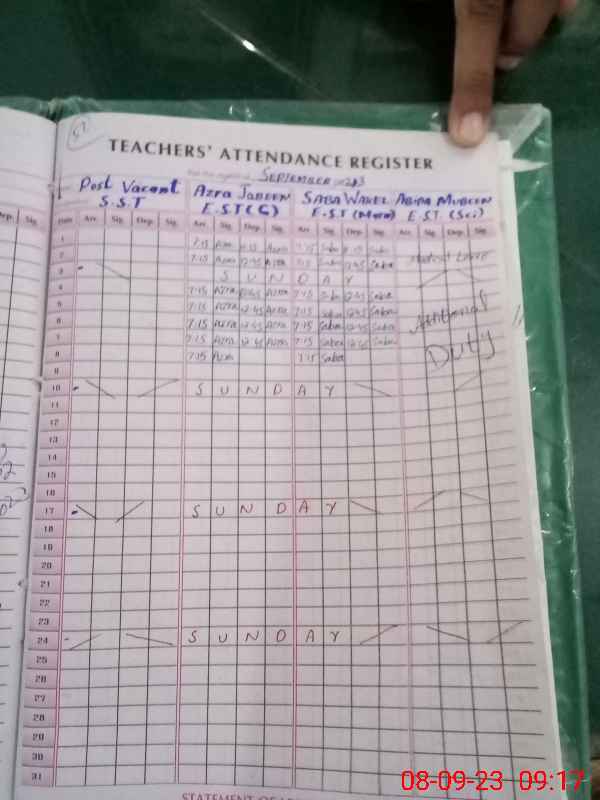 TEACHERS' ATTENDANCE REGISTER
SEPTEMBER 2023
Post Vacant Azra Jabeen Saba Wakel Abida Mubeen
S.S.T E.S.T(G) E.S.T (Math) E.S.T (Sci)
Date Arr. Sig. Dep. Sig. Arr. Sig. Dep. Sig. Arr. Sig. Dep. Sig. Arr. Sig. Dep. Sig.
1 7:15 Azra Azra 7:15 Saba Saba
2 7:15 Azra 12:45 Azra 7:15 Saba 12:45 Saba Leave
3 SUNDAY
4 7:15 Azra 12:45 Azra 7:15 Saba 12:45 Saba
5 7:15 Azra 12:45 Azra 7:15 Saba 12:45 Saba Additional
6 7:15 Azra 12:45 Azra 7:15 Saba 12:45 Saba
7 7:15 Azra 12:45 Azra 7:15 Saba 12:45 Saba Duty
8 7:15 Azra 7:15 Saba
9
10 SUNDAY
11
12
13
14
15
16
17 SUNDAY
18
19
20
21
22
23
24 SUNDAY
25
26
27
28
29
30
31
STATEMENT OF
08-09-23 09:17